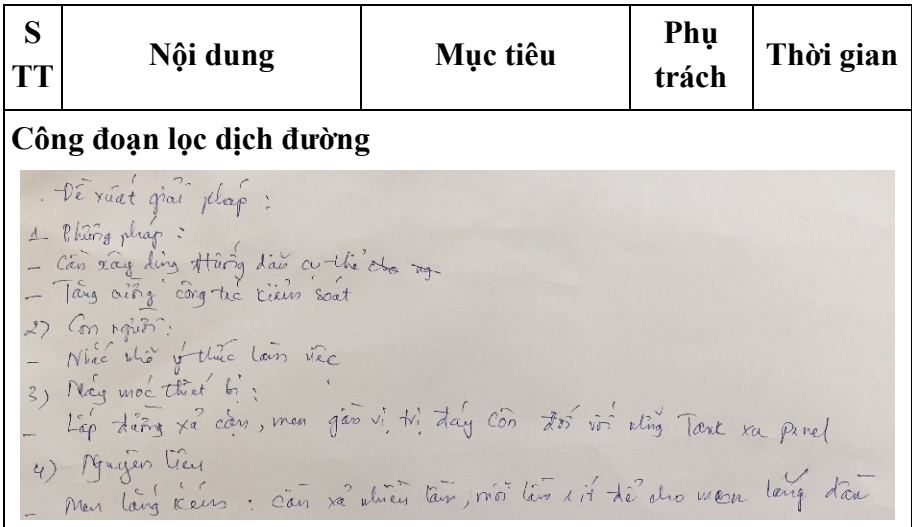 STT Nội dung Mục tiêu Phụ trách Thời gian
Công đoạn lọc dịch đường
. Đề xuất giải pháp :
1. Phương pháp :
- Cần xây dựng Hướng dẫn cụ thể
- Tăng cường công tác kiểm soát
2) Con người :
- Nhắc nhở ý thức làm việc
3) Máy móc thiết bị :
- Lắp đường xả cặn, men gần vị trí đáy côn đối với những Tank xa panel
4) Nguyên liệu
- Men lắng kém : cần xả nhiều lần, mỗi lần ít để cho men lắng dần